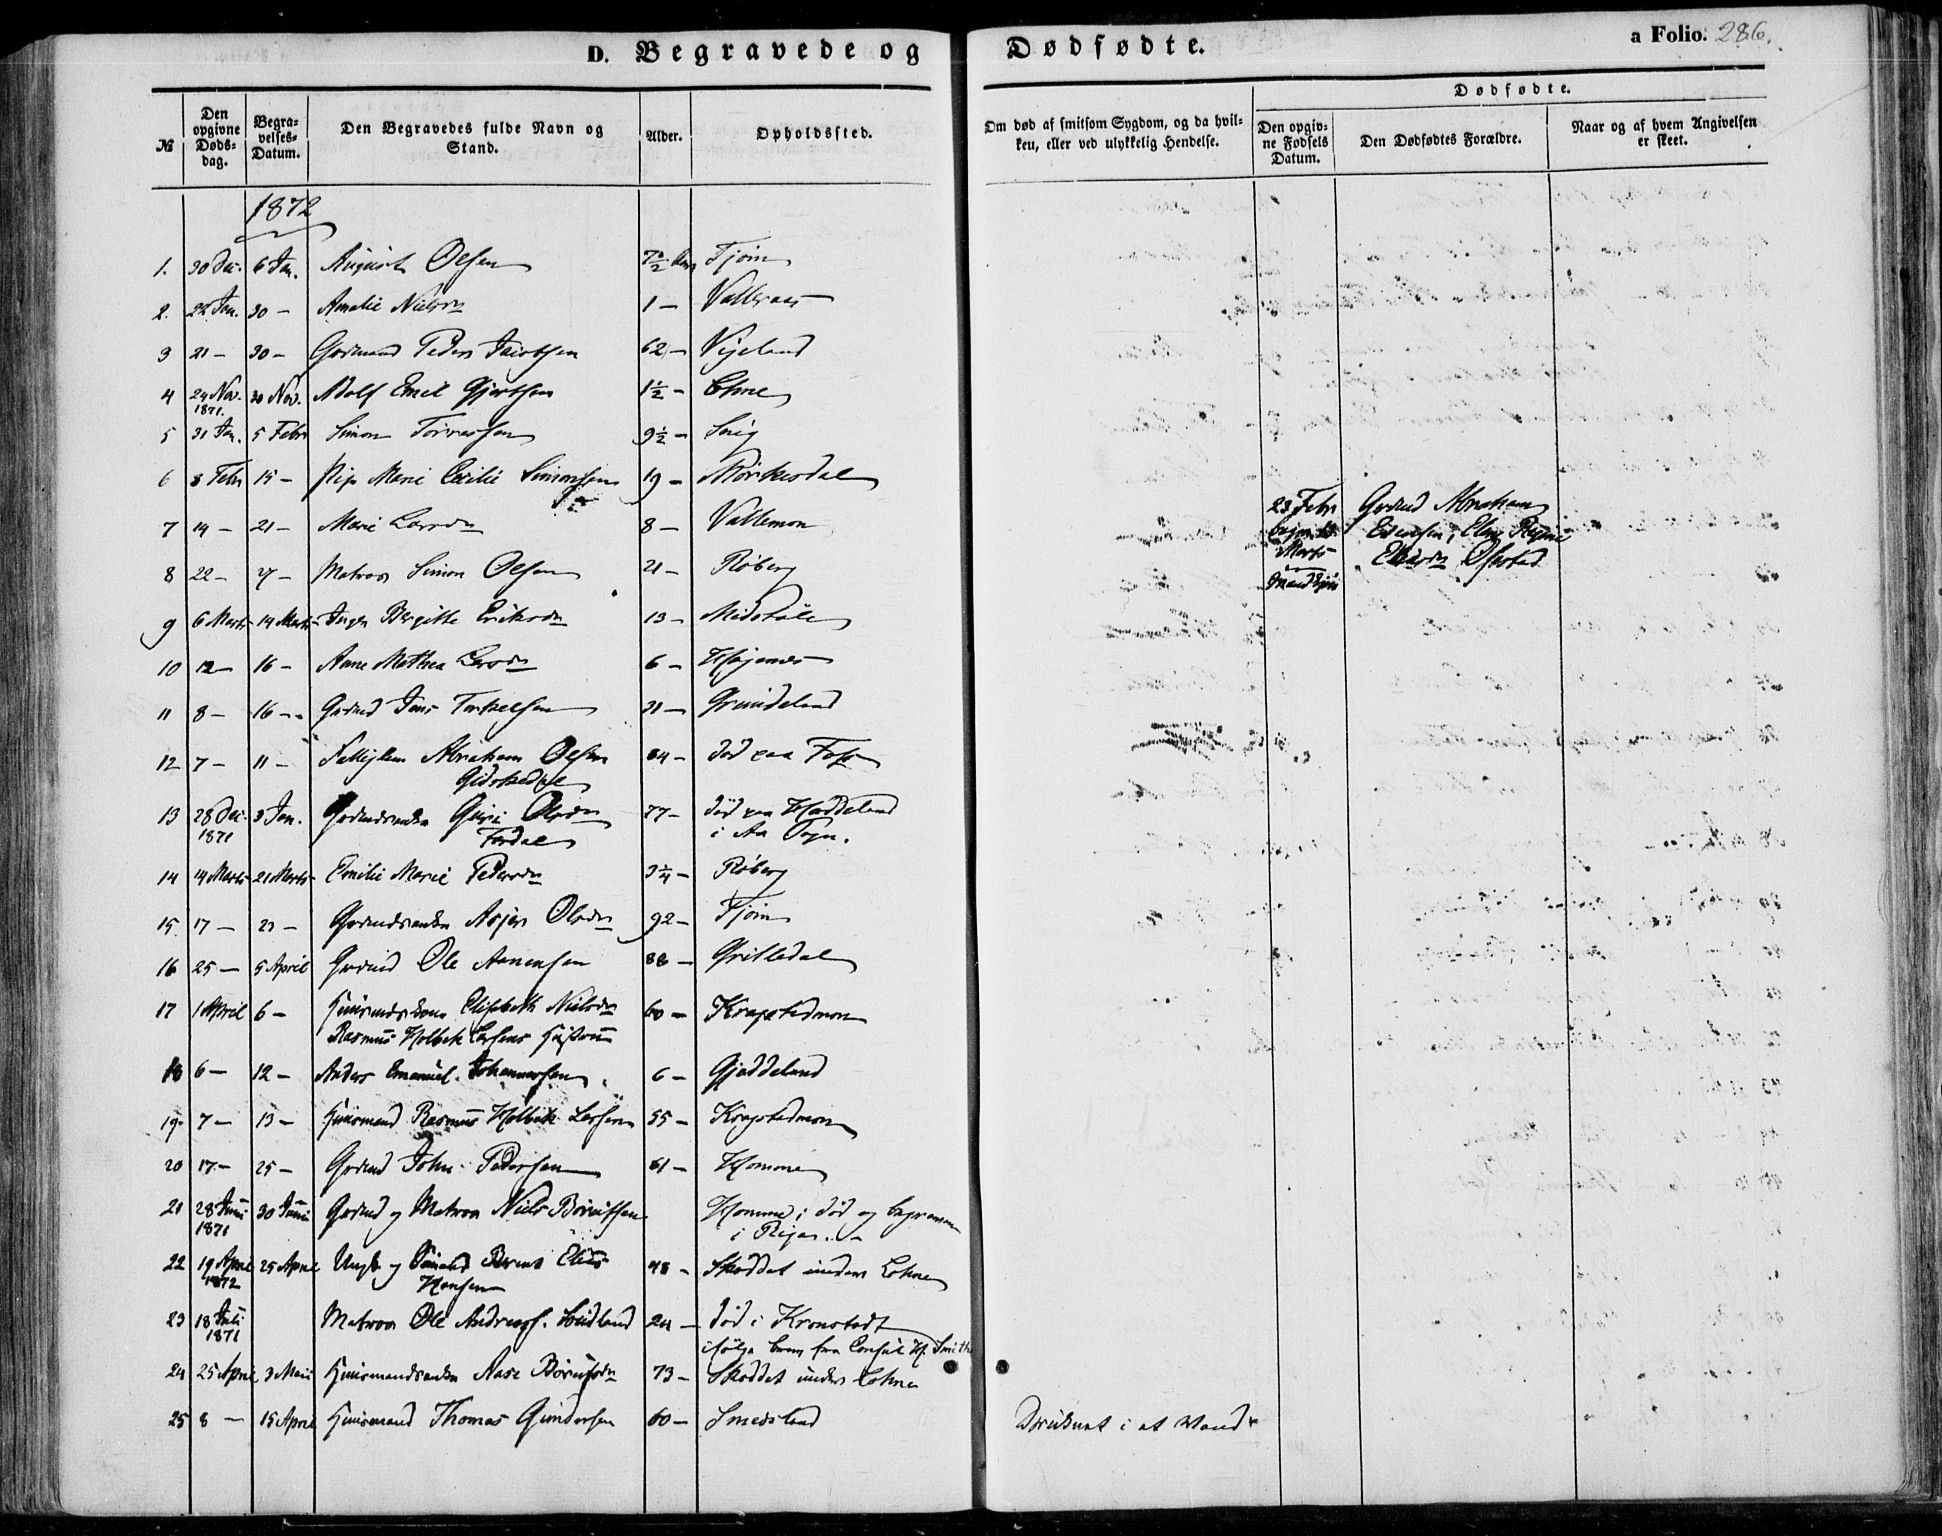 D. Begravede og Dødfødte.
a Folio. 286.
№
Den opgivne Døds-dag.
Begra-velses-Datum.
Den Begravedes fulde Navn og Stand.
Alder.
Opholdssted.
Om død af smitsom Sygdom, og da hvil-ken, eller ved ulykkelig Hendelse.
Dødfødte.
Den opgiv-ne Fødsels Datum.
Den Dødfødtes Forældre.
Naar og af hvem Angivelsen er skeet.
1872
1. 30 Dec. 6 Jan. August Olsen 7½ Tjøm
2. 22 Jan. 30 – Amalie Nielsdr 1 –
3 21 – 30 – Gaardmand Peder Jacobsen 62 – Vigeland
4 24 Nov. 1871. 30 Nov. Adolf Emil Gjertsen 1½ –
5 31 Jan. 5 Febr Simon Torressen 9½ –
6 8 Febr 15 – Pige Marie Cecilie Simonsen 19 –
7 14 – 21 – Marie Larsdr 8 – Vallemon
8 22 – 27 – Matros Simon Olsen 21 – Røberg
23 Febr
Marts
Gaardmd Abraham
Elen Regine
9 6 Marts 14 Marts Inger Bergitte Eriksdr 13 –
10 12 – 16 – Anne Mathea Larsdr 6 –
11 8 – 16 – Gaardmd Jens Torkelsen 31 – Grundeland
12 7 – 11 – Abraham Olsen 84 – død paa Foss
Gidskedal
13 28 Dec. 1871 3 Jan. Guri Olsdr 77 – død paa Haddeland
i Aa Sogn.
14 14 Marts 21 Marts Emilie Marie Pedersdr 3¼ – Røberg
15 17 – 23 – Asjer Olsdr 92 – Tjøm
16 25 – 5 April Gaardmd Ole Aanensen 88 –
17 1 April 6 – Elisabeth Nielsdr 60 – Kragstedmon
Rasmus Holbek Larsens Hustru
18 6 – 12 – Anders Emanuel Johannessen 6 – Gjeddeland
19 7 – 13 – Huusmand Rasmus Holbek Larsen 55 – Kragstedmon
20 17 – 25 – Gaardmd John Pedersen 61 – Homme
21 28 Juni 1871 30 Juni Gaardmd og Matros Niels Berentsen Homme; død og begraven
i Riga.
22 19 April 1872 25 April Berent Elias Hansen 48 – Skoddet under Lohne
23 18 Juli 1871 Matros Ole Andreas. 24 – død i Kronstadt
ifølge brev fra Consul H. Smith
24 25 April 3 Mai Huusmandsenke Aase 73 – Skoddet under Lohne
25 8 – 15 April Huusmand Thomas Gundersen 60 – Smedsland Druknet i et Vand